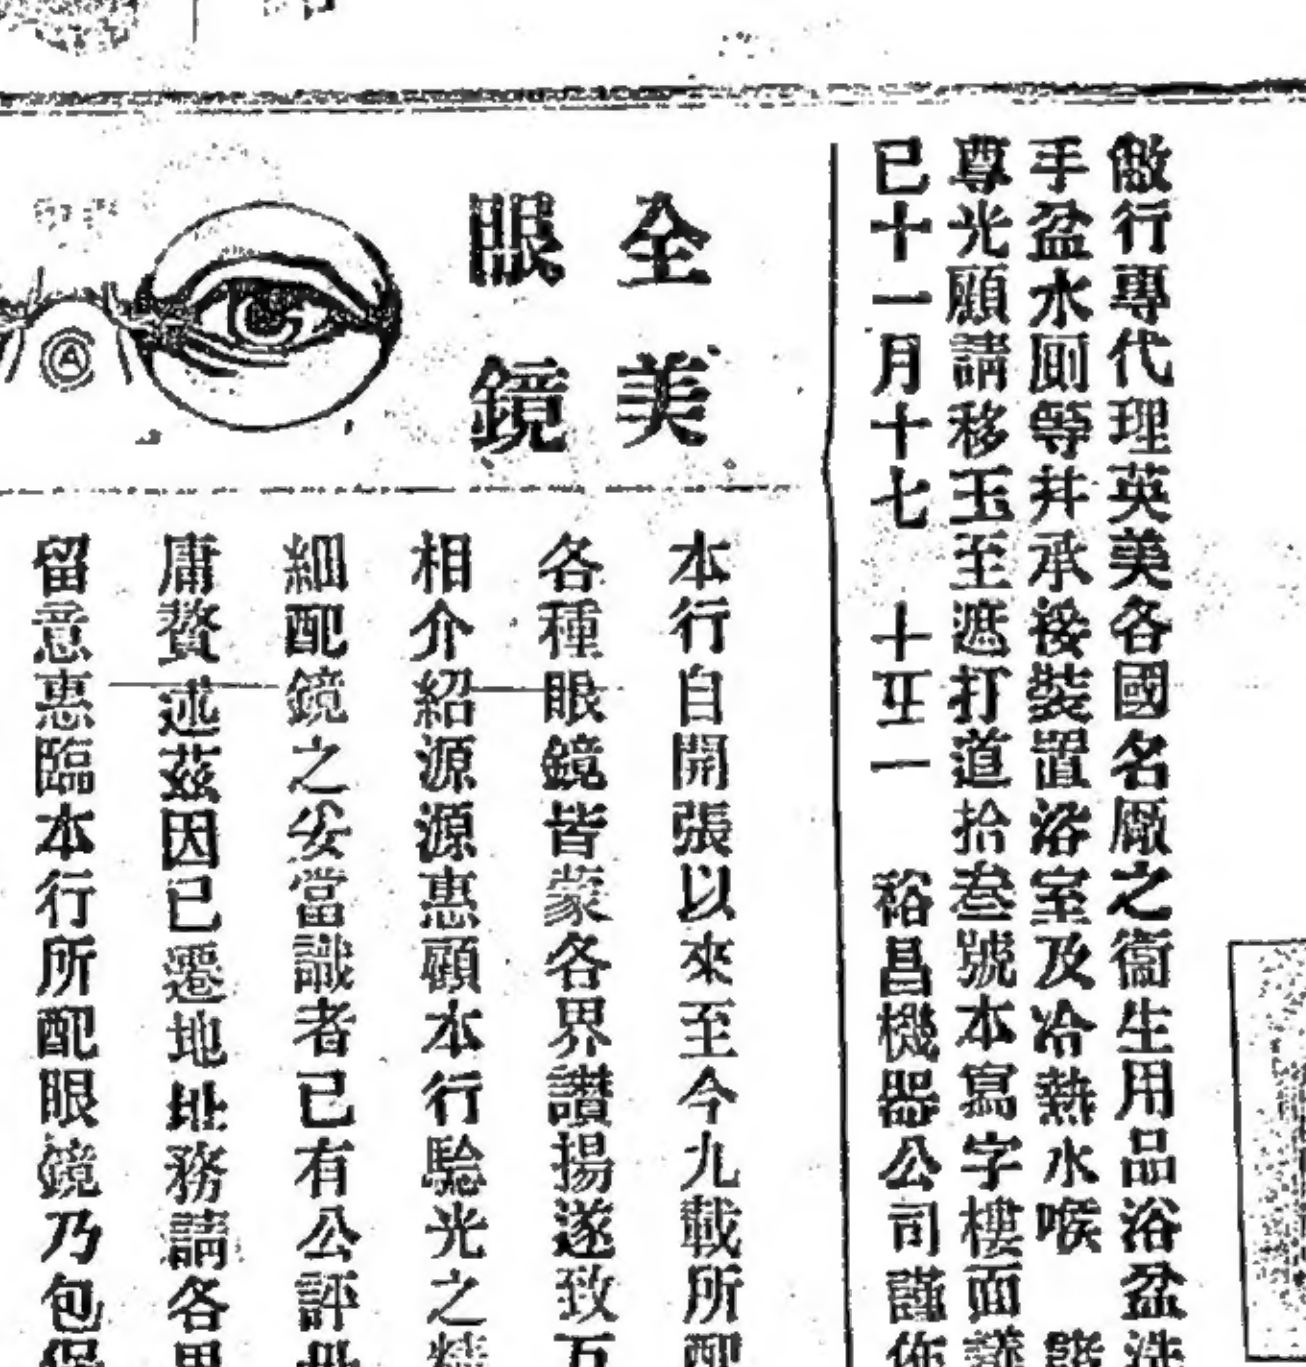 敝行專代理英美各國名厰之衞生用品浴盆洗
手盆水厠等并承接裝置浴室及冷熱水喉
尊光顧請移玉至遮打道拾叁號本寫字樓面議
已十一月十七 十五一 裕昌機器公司謹佈
全美
眼鏡
本行自開張以來至今九載所配
各種眼鏡皆蒙各界讚揚遂致互
相介紹源源惠顧本行驗光之精
細配鏡之妥當識者已有公評毋
庸贅述茲因已遷地址務請各界
留意惠臨本行所配眼鏡乃包保
A